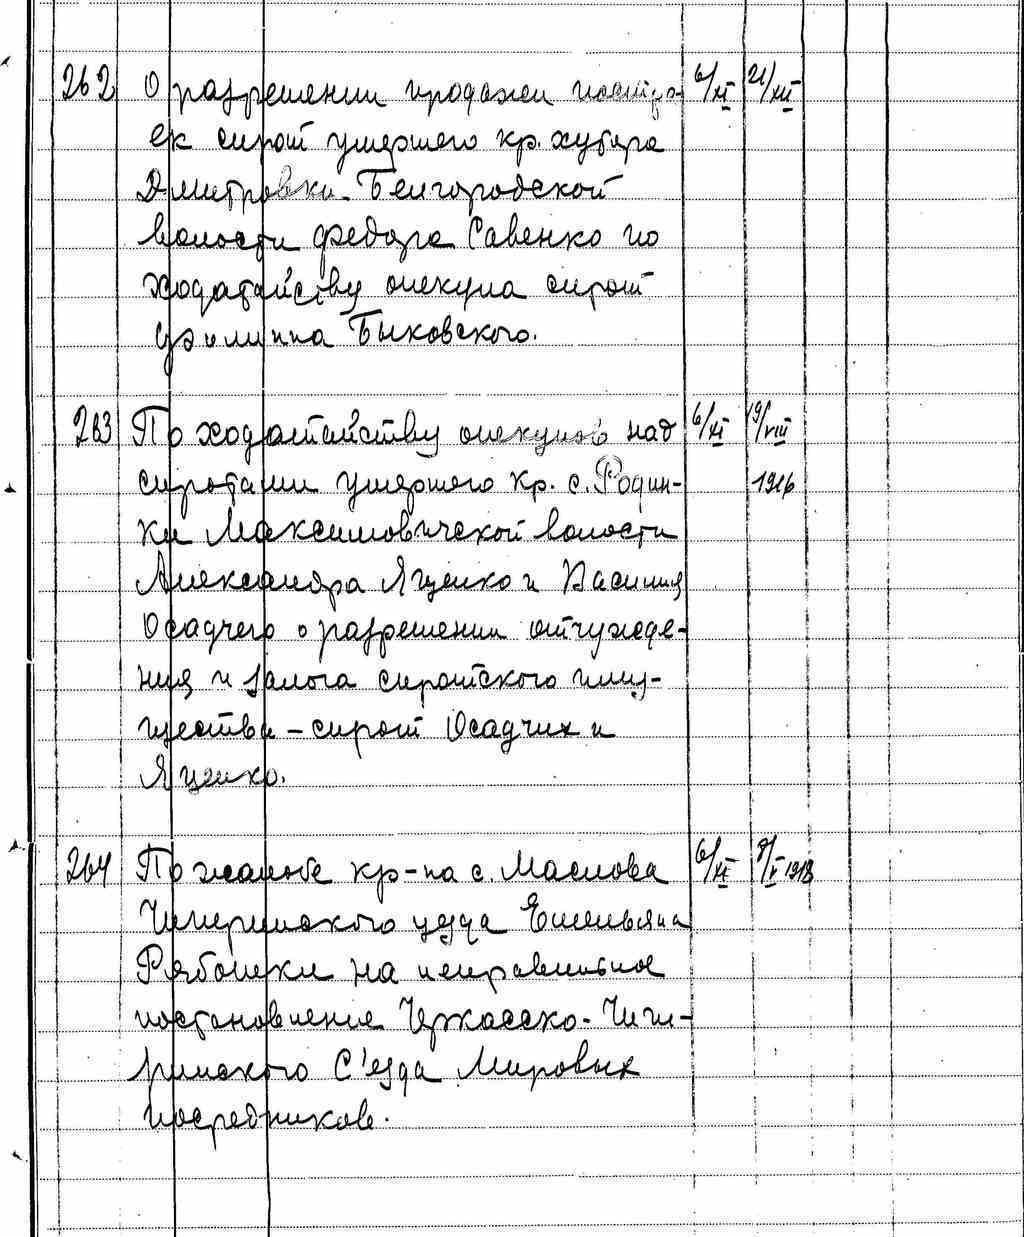 262 О разрешении продажи постро- 6/XI 21/XII
ек сирот умершего кр. хутора
Дмитровки Белгородской
волости Федора Савенко по
ходатайству опекуна сирот
Филиппа Быковского.
263 По ходатайству опекунов над 6/XI 19/VIII
сиротами умершего кр. с. Родин- 1916
ки Максимовической волости
Александра Яценко и Василия
Осадчего о разрешении отчужде-
ния и залога сиротского иму-
щества - сирот Осадчих и
Яценко.
264 По жалобе кр-на с. Маслова 6/XI /V 1918
Чигиринского уезда Емельяна
Рябошеки на неправильное
постановление Черкасско-Чиги-
ринского С'езда Мировых
посредников.